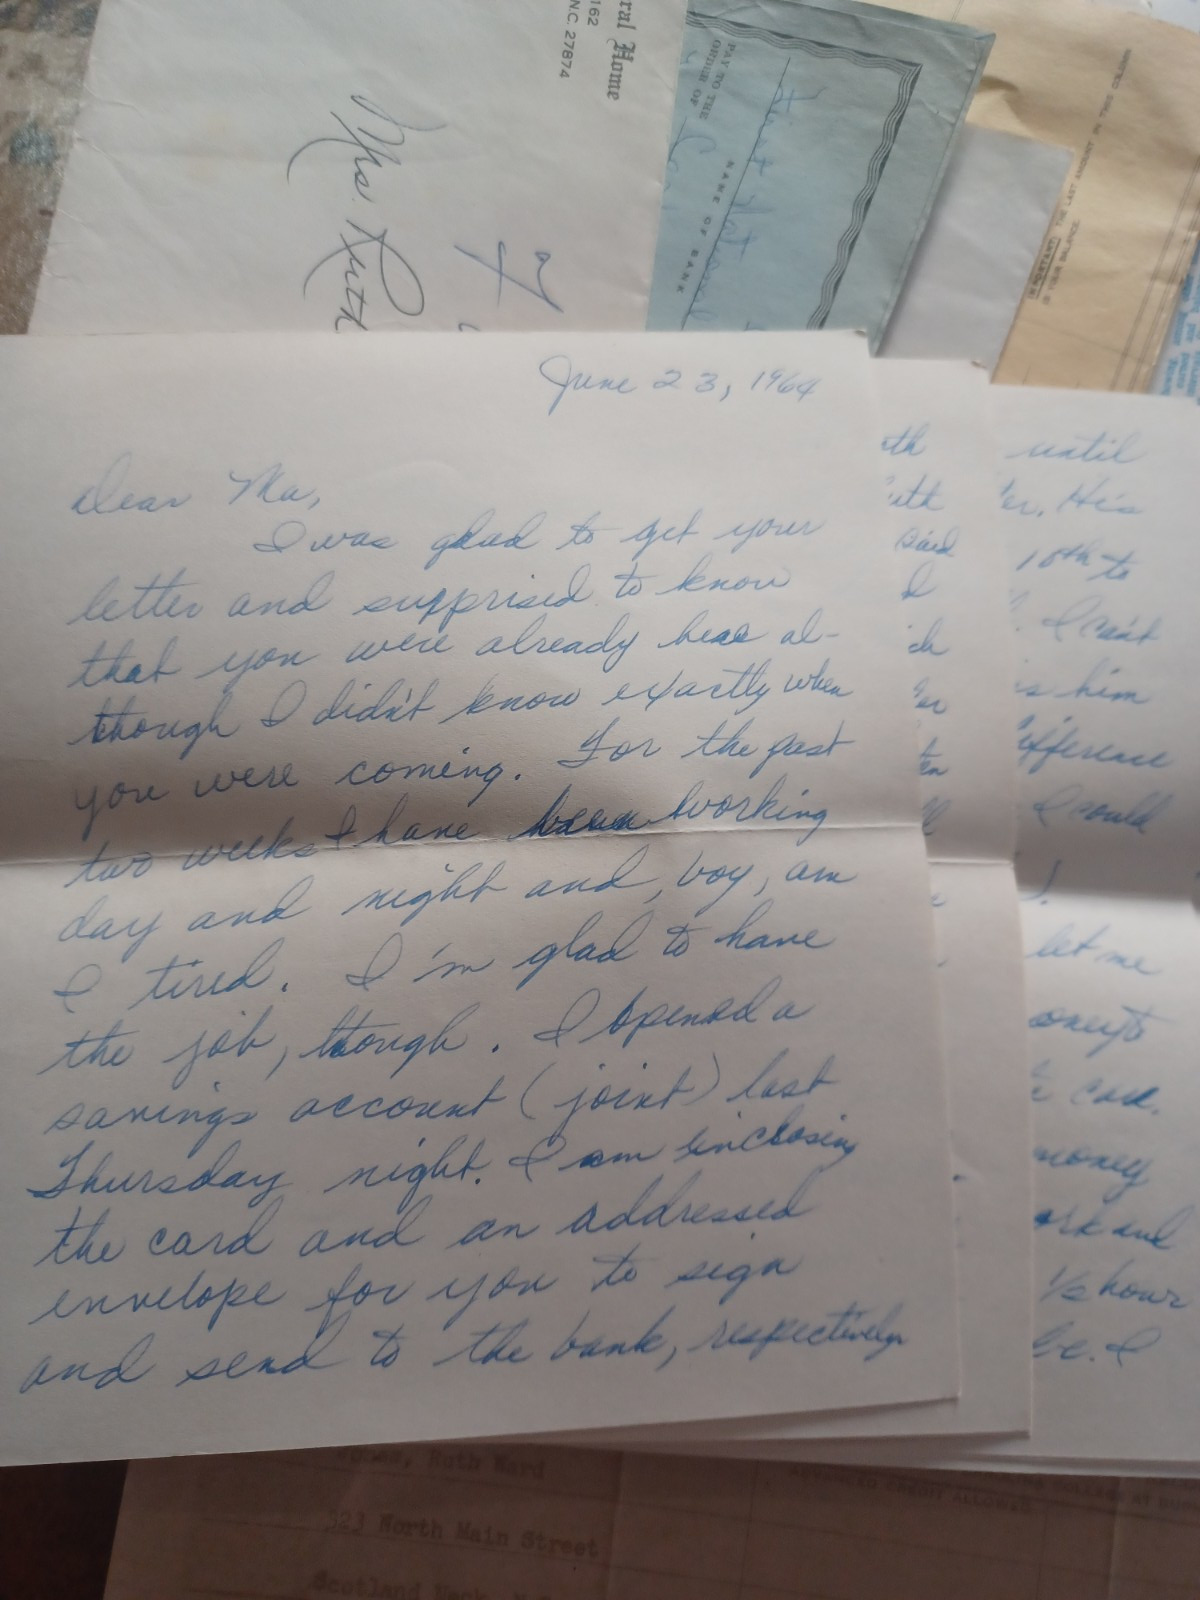 ral Home
162
N.C. 27874
Mrs. Ruth
PAY TO THE
ORDER OF
First
NAME OF BANK
IMPORTANT THE LAST AMOUNT IN THIS COLUMN
IS YOUR BALANCE
June 23, 1964
Dear Ma,
I was glad to get your
letter and supprised to know
that you were already here al-
though I didn't know exactly when
you were coming. For the past
two weeks I have been working
day and night and, boy, am
I tired. I'm glad to have
the job, though. I opened a
savings account (joint) last
Thursday night. I am enclosing
the card and an addressed
envelope for you to sign
and send to the bank, respectively
said
I
until
er. His
18th to
. I can't
is him
ifference
I could
let me
money
ork and
1/2 hour
I
, Ruth Ward
323 North Main Street
Scotland Neck, N.